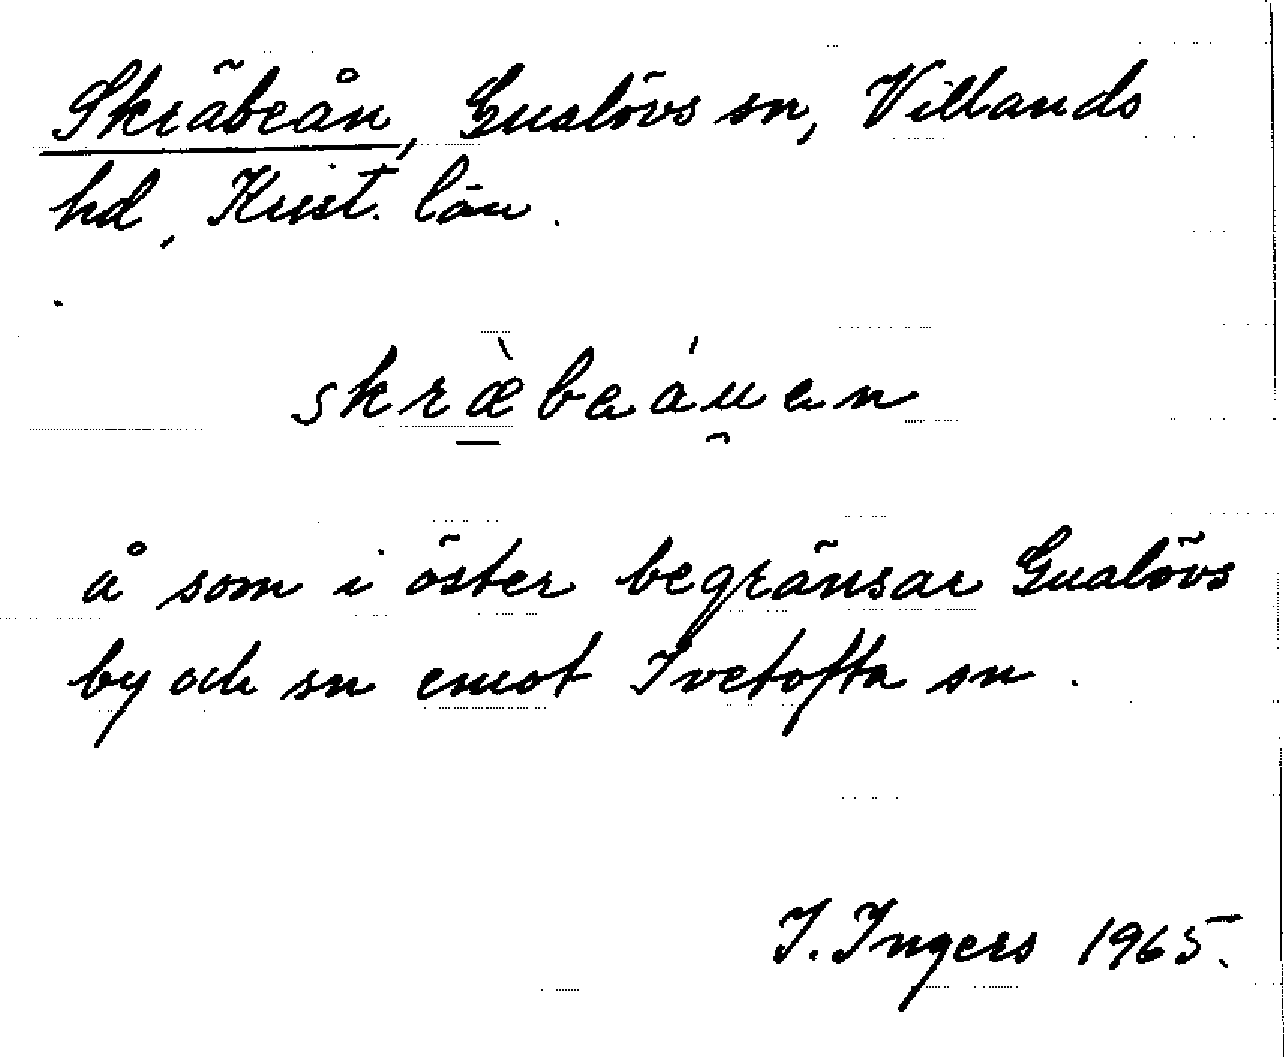 Skräbeån, Gualövs sn, Villands
hd, Krist. län.
skræ̀beáuen
å som i öster begränsar Gualövs
by och sn emot Ivetofta sn.
I. Ingers 1965.